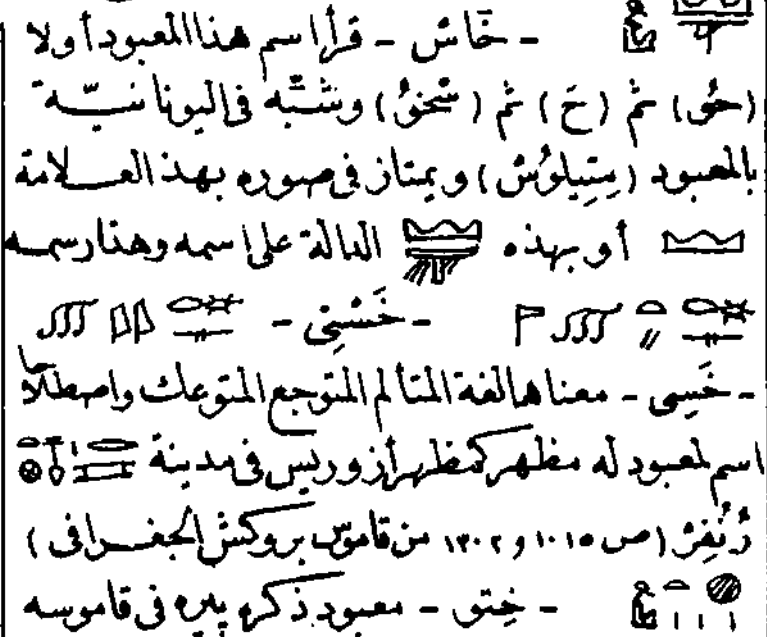 - خَاش - قرأ اسم هذا المعبود أولا
(حُى) ثم (خَ) ثم (سْخنُ) وشبّه فى اليونانيّة
بالمعبود (سِتِيلوُش) ويمتاز فى صوره بهذ العلامة
أو بهذه الدالة على اسمه وهنا رسمه
- خَسْتِى -
- خَسِى - معناها لغة المتألم المتوجع المتوعك واصطلاحا
اسم لمعبود له مظهر كمظهر أزوريس فى مدينة
رُنَفِرْ (ص ١٠١٥ و ١٣٠٢ من قاموس بروكش الجغرافى)
- خِتو - معبود ذكره پيره فى قاموسه